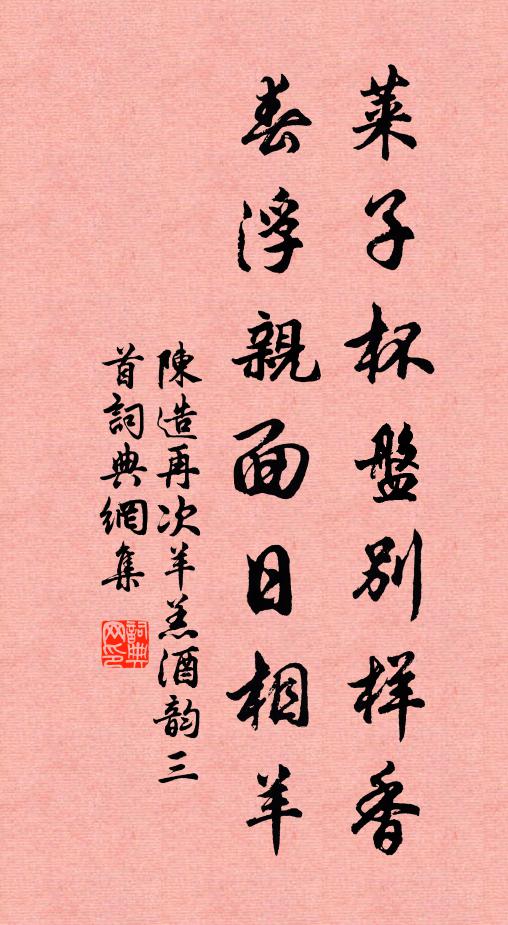 萊子杯盤別样香
春浮親面日相羊
陳造再次羊羔酒韵三
首詞典網集
詞典網印